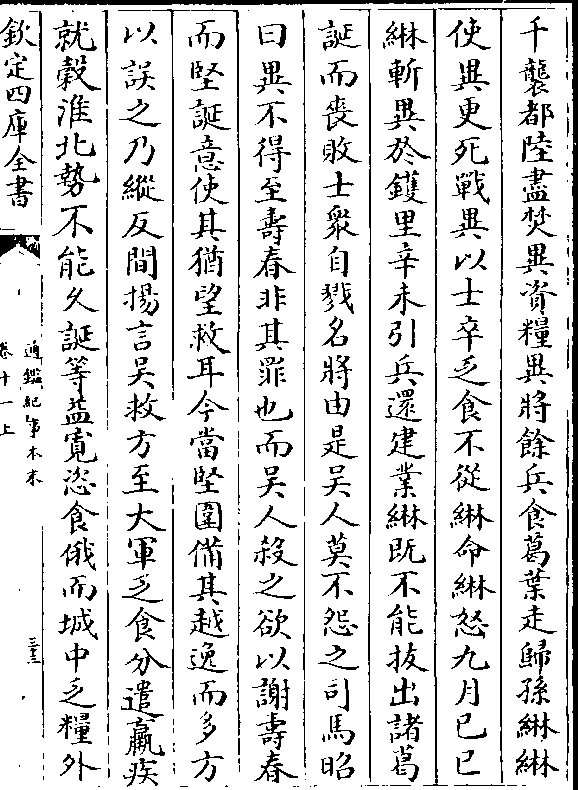 千襲都陸盡焚異資糧異將餘兵食葛葉走歸孫綝綝
使異更死戰異以士卒乏食不從綝命綝怒九月己巳
綝斬異於鑊里辛未引兵還建業綝既不能拔出諸葛
誕而喪敗士衆自戮名將由是吳人莫不怨之司馬昭
曰異不得至壽春非其罪也而吳人殺之欲以謝壽春
而堅誕意使其猶望救耳今當堅圍備其越逸而多方
以誤之乃縱反間揚言吳救方至大軍乏食分遣羸疾
就穀淮北勢不能久誕等益寛恣食俄而城中乏糧外
欽定四庫全書
通鑑紀事本末
卷十一上
三十三